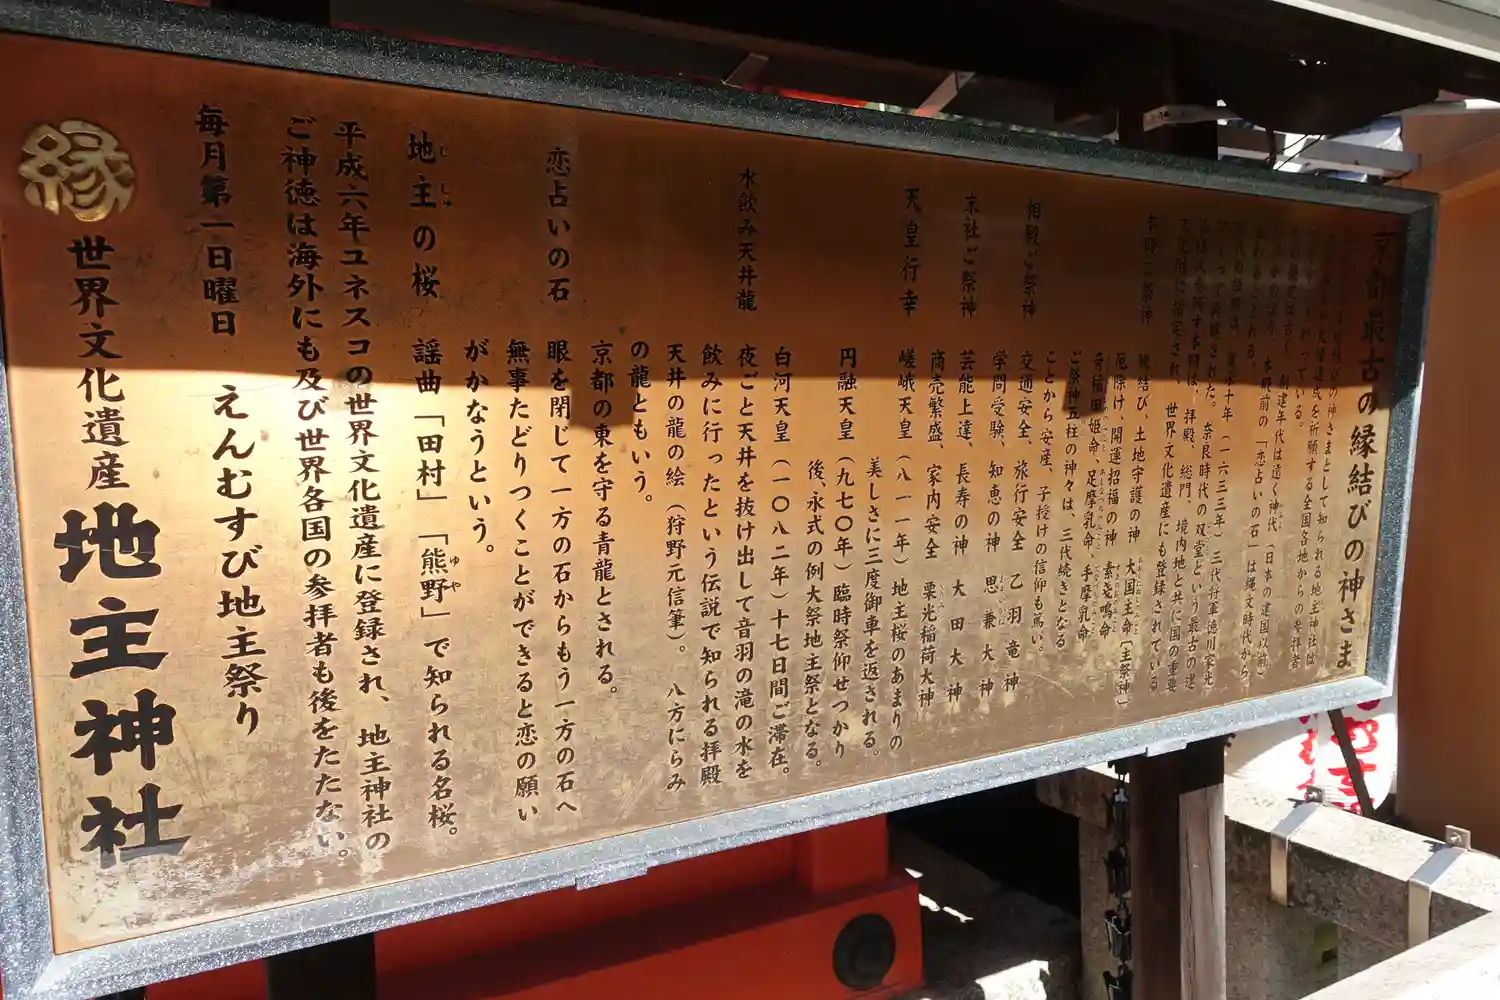 京都最古の縁結びの神さま
縁結びの神さまとして知られる地主神社は
良縁達成を祈願する全国各地からの参拝者
わっている。
歴史は古く、創建年代は遠く神代（日本の建国以前）
さかのぼり、本殿前の「恋占いの石」は縄文時代から
とされる。
現代の社殿は、寛永十年（一六三三年）三代将軍徳川家光
によって再建された。奈良時代の双堂という最古の建
本殿は、拝殿、総門、境内地と共に国の重要
文化財に指定され、世界文化遺産にも登録されている
本殿ご祭神
縁結び、土地守護の神　大国主命［主祭神］
厄除け、開運招福の神　素戔嗚命
奇稲田姫命、足摩乳命、手摩乳命
ご祭神五柱の神々は、三代続きとなる
ことから安産、子授けの信仰も篤い。
相殿ご祭神
交通安全、旅行安全　乙羽竜神
学問受験、知恵の神　思兼大神
末社ご祭神
芸能上達、長寿の神　大田大神
商売繁盛、家内安全　栗光稲荷大神
天皇行幸
嵯峨天皇（八一一年）地主桜のあまりの
美しさに三度御車を返される。
円融天皇（九七〇年）臨時祭仰せつかり
後、永式の例大祭地主祭となる。
白河天皇（一〇八二年）十七日間ご滞在。
水飲み天井龍
夜ごと天井を抜け出して音羽の滝の水を
飲みに行ったという伝説で知られる拝殿
天井の龍の絵（狩野元信筆）。八方にらみ
の龍ともいう。
京都の東を守る青龍とされる。
恋占いの石
眼を閉じて一方の石からもう一方の石へ
無事たどりつくことができると恋の願い
がかなうという。
地主の桜
じしゅ
謡曲「田村」「熊野」で知られる名桜。
ゆや
平成六年ユネスコの世界文化遺産に登録され、地主神社の
ご神徳は海外にも及び世界各国の参拝者も後をたたない。
毎月第一日曜日　えんむすび地主祭り
縁
世界文化遺産　地主神社